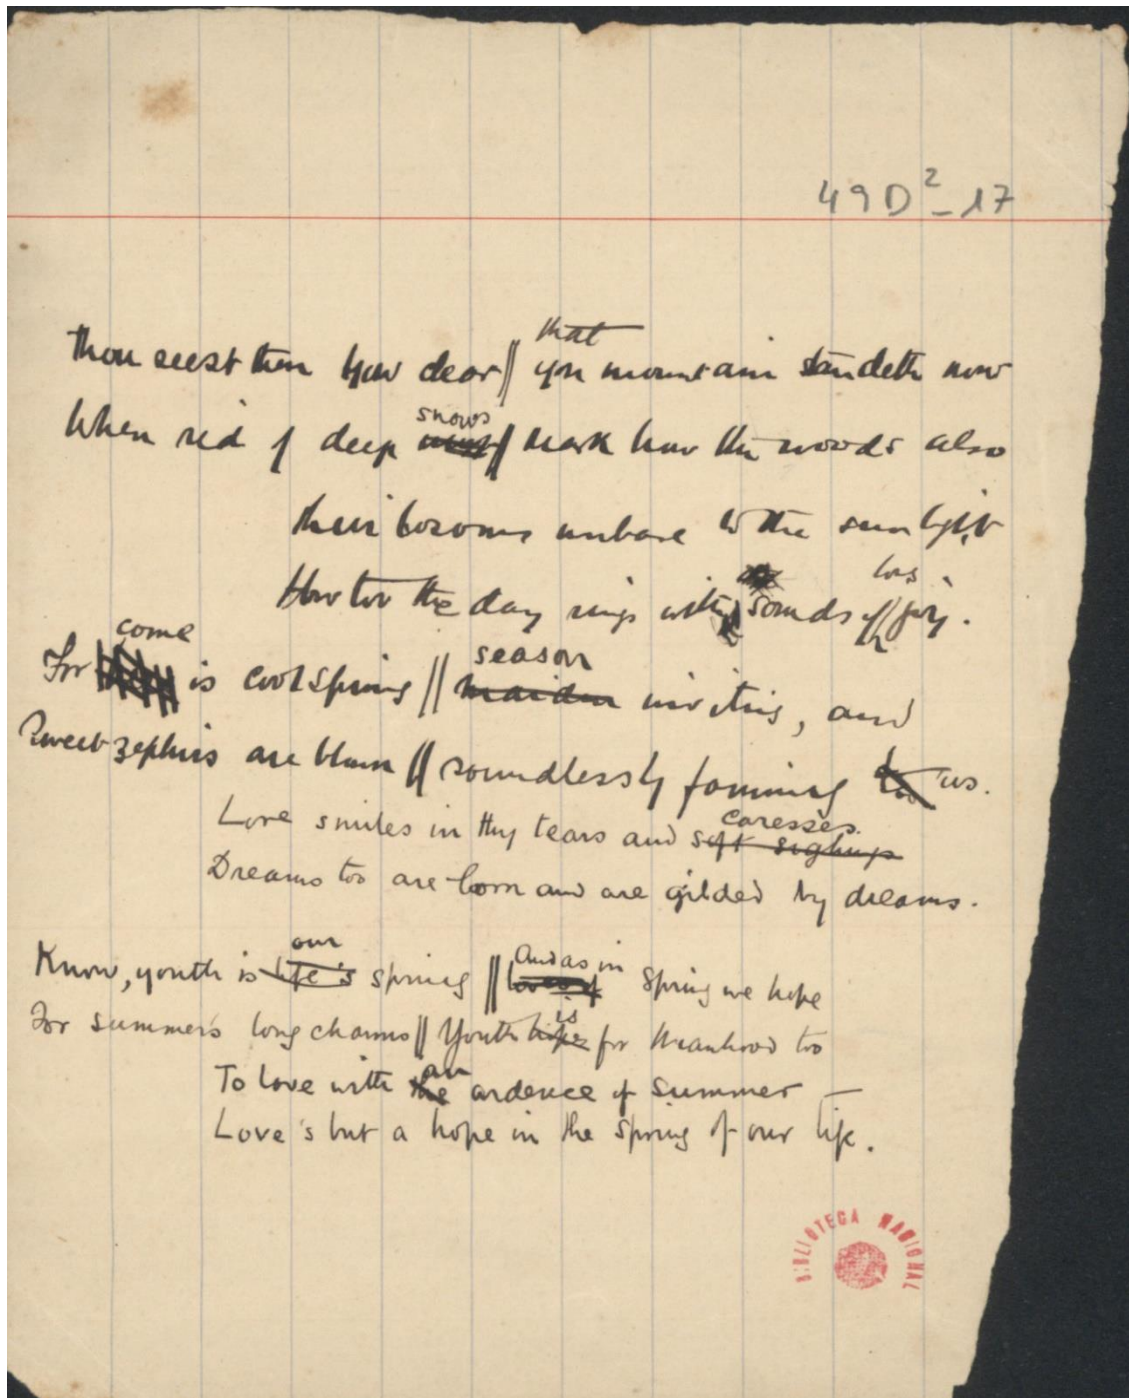 49D²-17
that
Thou seest then how clear // yon mountain standeth now
snows
When rid of deep // mark how the woods also
their bosoms unbare to the sunlight
How too the day rings with sounds of joy.
come
For is cool spring // season
maiden inviting, and
Sweet zephirs are blown // soundlessly fanning to us.
Love smiles in thy tears and caresses.
soft sighings
Dreams too are born and are gilded by dreams.
our and as in
Know, youth is life's spring // spring we hope
is
For summer's long charms // Youth hopes for manhood too
an
To love with the ardence of summer —
Love's but a hope in the spring of our life.
BIBLIOTECA NACIONAL